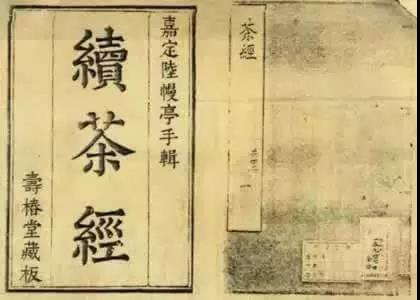 嘉定陸幔亭手輯
續茶經
壽椿堂藏板
茶經